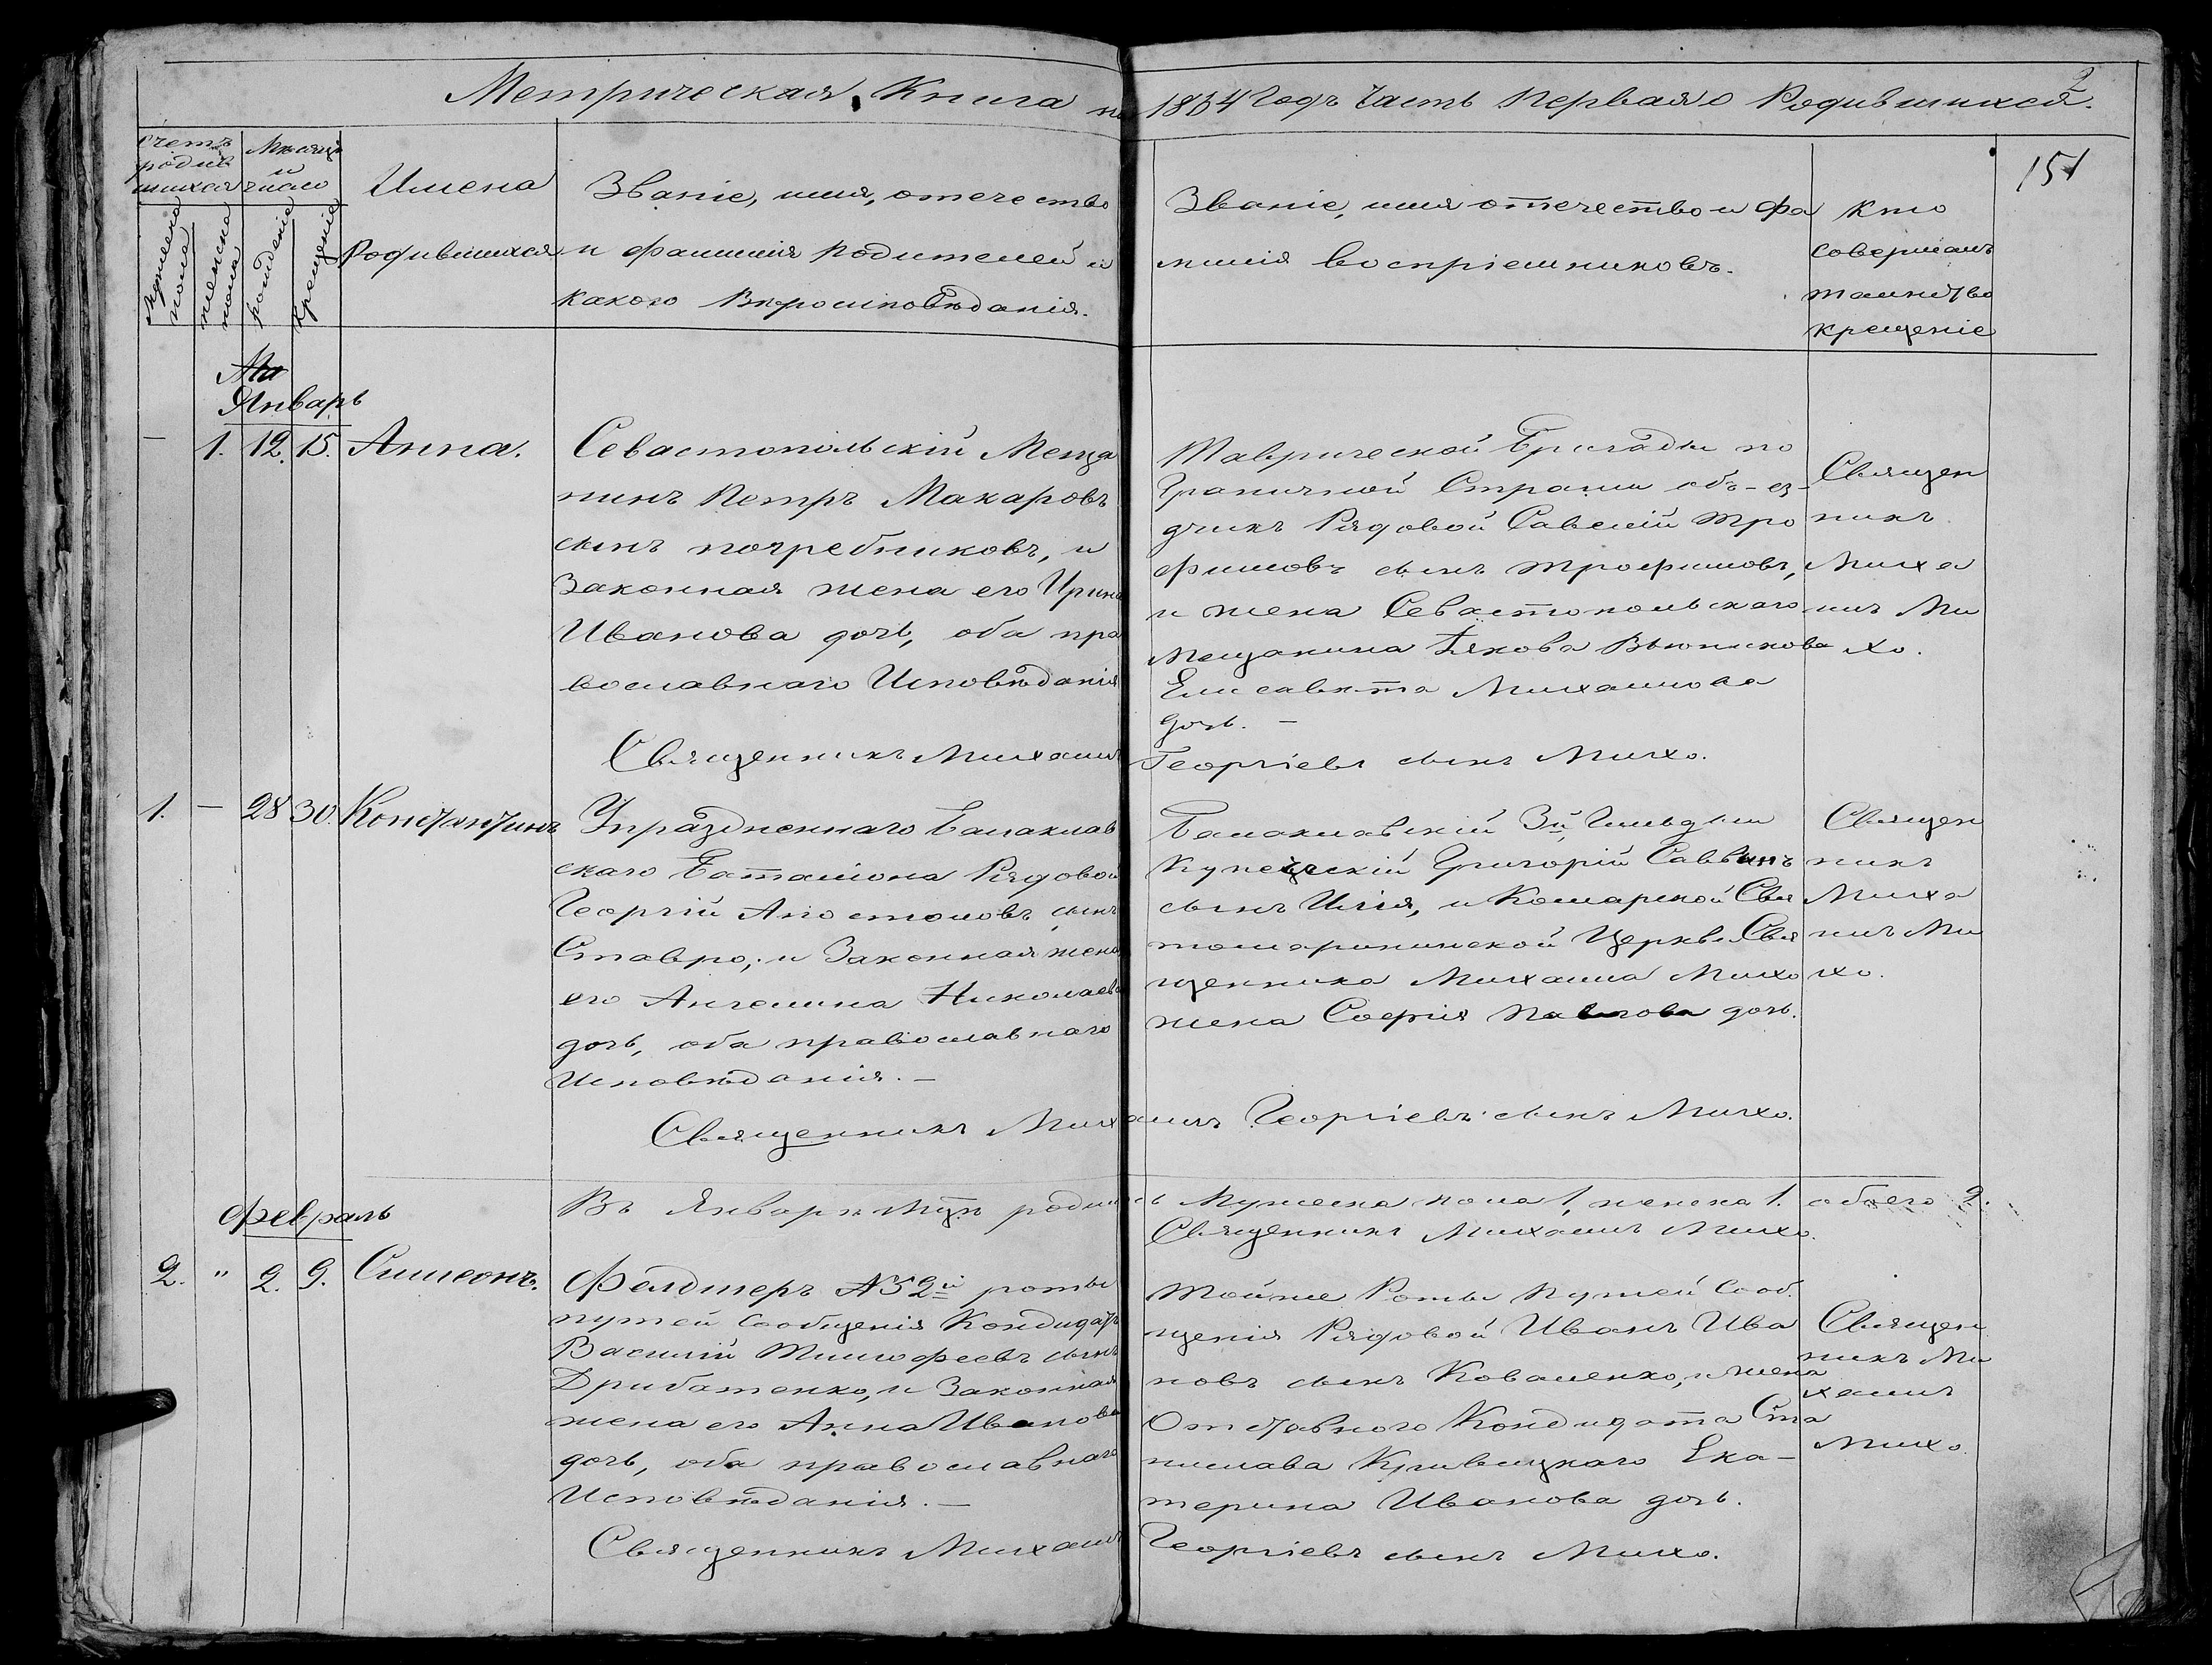 Метрическая Книга на 1864 Годъ Часть Первая о Родившихся.
151
Счетъ родив шихся
Мужеска пола
женска пола
Мѣсяцъ и число
рожденіе
крещеніе
Имена
Родившихся
Званіе, имя, отечество
и фамилія Родителей и
какого Вѣроисповѣданія.
Званіе, имя отечество и фа
милія воспріемниковъ.
Кто
совершалъ
таинство
крещеніе
Январь
— 1. 12. 15. Анна.
Севастопольскій Меща
нинъ Петръ Макаровъ
сынъ погребниковъ, и
Законная жена его Ирина
Иванова дочь, оба пра
вославнаго Исповѣданія
Таврической Бригады по
Граничной Стражи объ-ез-
дчикъ Рядовой Савелій Тро
фимовъ сынъ Трофимовъ,
и жена Севастопольскаго
Мещанина Якова Вьюникова
Елисавѣта Михаилова
дочь. —
Священ
никъ
Миха
илъ Ми
хо.
Священникъ Михаилъ Георгіевъ сынъ Михо.
1. — 28 30. Константинъ
Упраздненнаго Балаклав
скаго Баталіона Рядовой
Георгій Апостоловъ сынъ
Ставро, и Законная жена
его Ангелина Николаева
дочь, оба православнаго
Исповѣданія. —
Балаклавскій 3й Гильдыи
Купеческій Григорій Саввинъ
сынъ Илія, и Комарской Свя
томаринской Церкви Свя
щенника Михаила Михо
жена Софія Павлова дочь.
Священ
никъ
Миха
илъ Ми
хо.
Священникъ Михаилъ Георгіевъ сынъ Михо.
Въ Январѣ Мцѣ родилось Мужеска пола 1, женска 1. обоего 2.
Священникъ Михаилъ Михо.
Февраль
2. " 2. 9. Симеонъ.
Фелдшеръ №52й роты
путей Сообщенія Кондидатъ
Василій Тимофеевъ сынъ
Дрибатенко, и Законная
жена его Анна Иванова
дочь, оба православнаго
Исповѣданія. —
Тойже Роты Путей Сооб.
щенія Рядовой Иванъ Ива
новъ сынъ Коваленко, и жена
Отставного Кондидата Ста
нислава Кривицкаго Ека-
терина Иванова дочь.
Священ
никъ Ми
хаилъ
Михо.
Священникъ Михаилъ Георгіевъ сынъ Михо.